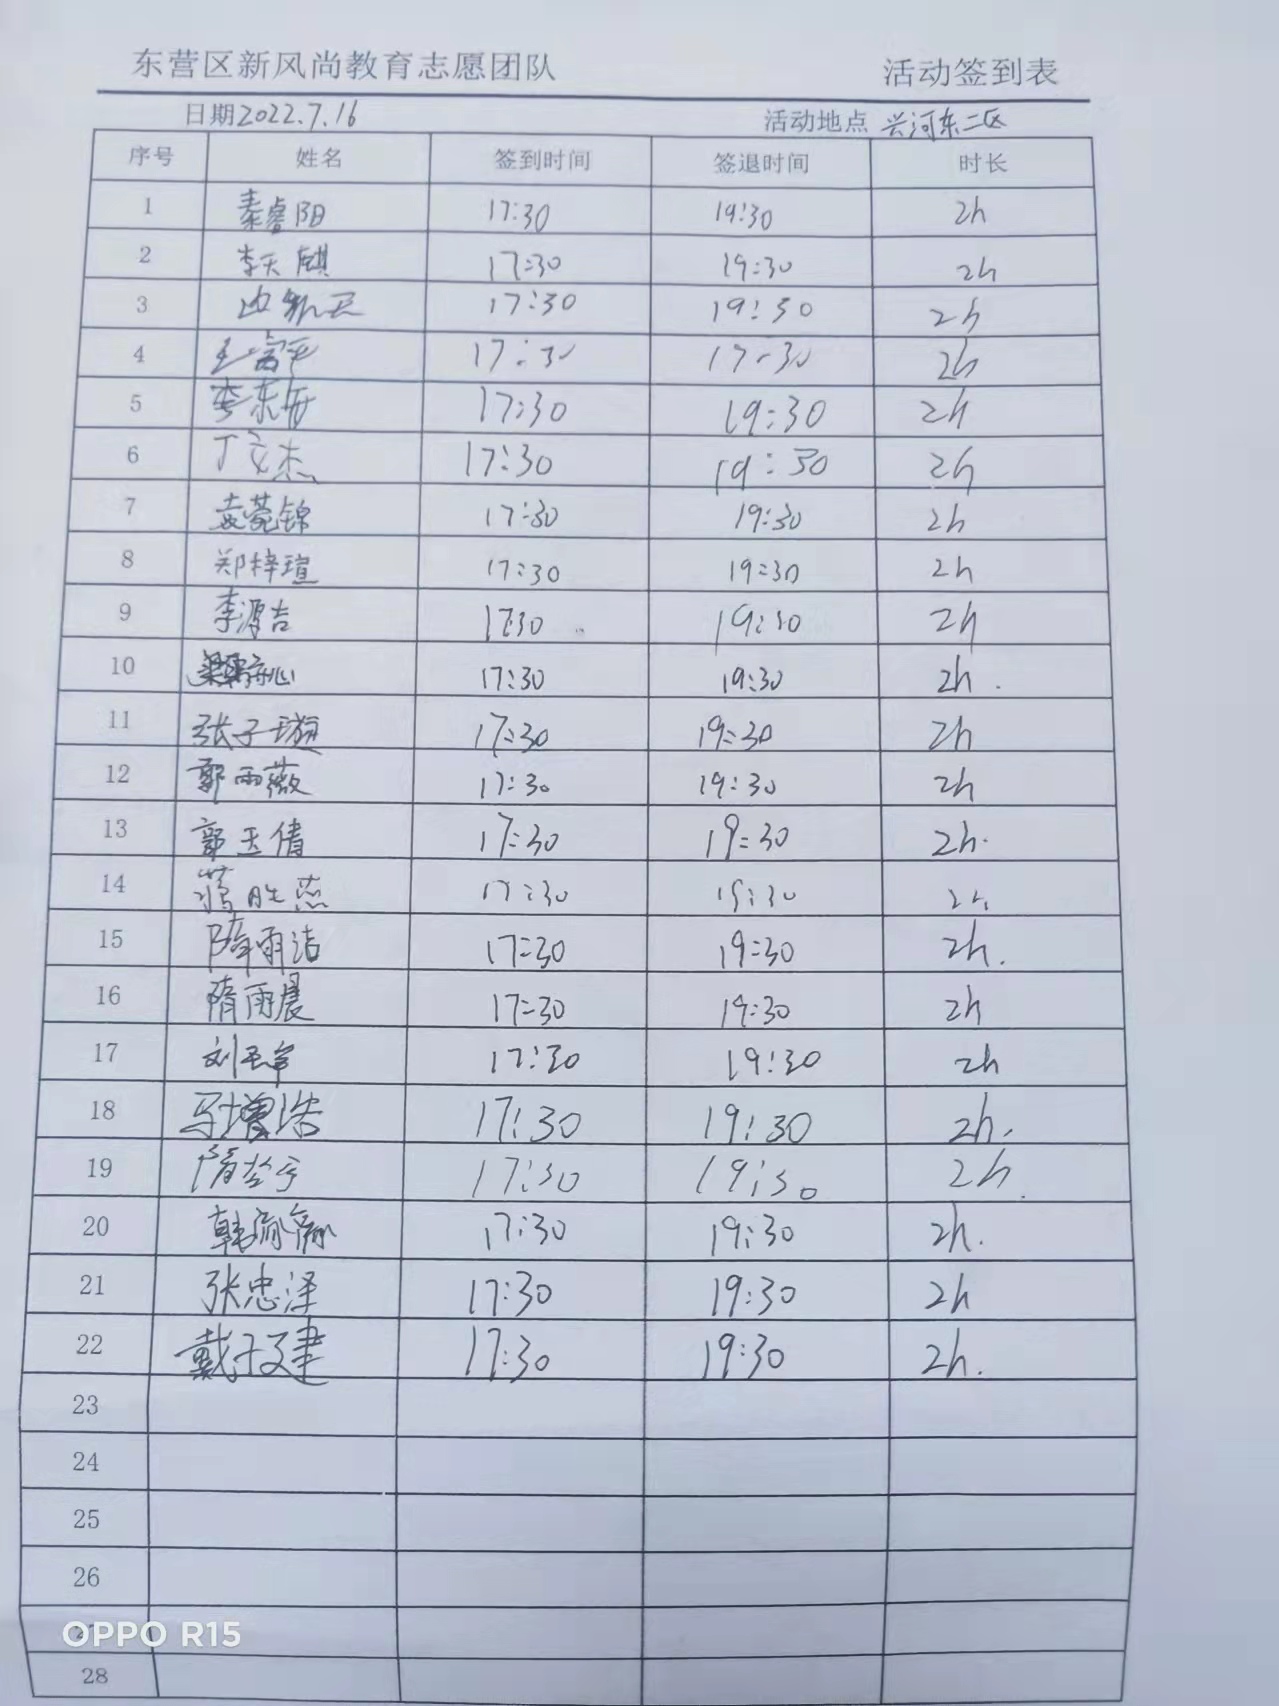 东营区新风尚教育志愿团队 活动签到表
日期2022.7.16 活动地点 兴河东二区
序号 姓名 签到时间 签退时间 时长
1 秦睿阳 17:30 19:30 2h
2 李天麒 17:30 19:30 2h
3 17:30 19:30 2h
4 17:30 17:30 2h
5 李东 17:30 19:30 2h
6 丁文杰 17:30 19:30 2h
7 袁菀锦 17:30 19:30 2h
8 郑梓瑄 17:30 19:30 2h
9 李源吉 17:30 19:30 2h
10 17:30 19:30 2h.
11 张子璇 17:30 19:30 2h
12 郭雨薇 17:30 19:30 2h
13 郭玉倩 17:30 19:30 2h.
14 17:30 19:30 2h
15 隋雨洁 17:30 19:30 2h.
16 隋雨晨 17:30 19:30 2h
17 刘 17:30 19:30 2h
18 马增浩 17:30 19:30 2h.
19 隋 17:30 19:30 2h.
20 韩 17:30 19:30 2h.
21 张忠泽 17:30 19:30 2h
22 戴 建 17:30 19:30 2h.
23
24
25
26
OPPO R15
28